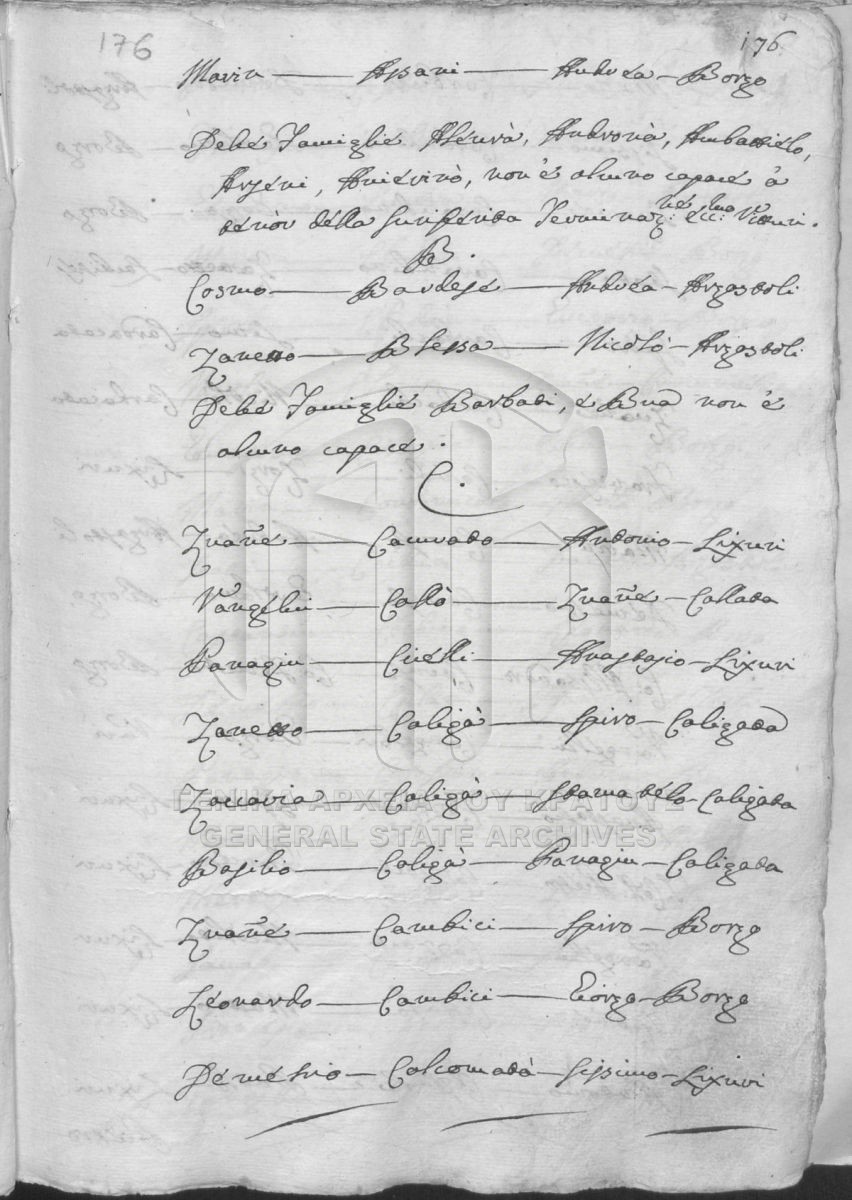 176
176
Marin — Assani — Andrea — Borgo
Delle Famiglie Alevrà, Andronà, Ambatielo,
Arseni, Anievinò, non è alcuno capace à
tenòr della suriferida Terminaz:ne Ecc:ma Vitturi.
B.
Cosmo — Bardese — Andrea — Argostoli
Zanetto — Blessa — Nicolò — Argostoli
Delle Famiglie Barbati, e Bua non è
alcuno capace.
C.
Zuañe — Camvado — Andonio — Lixuri
Vangelin — Collò — Zuañe — Collata
Panagin — Cielli — Anastasio — Lixuri
Zanetto — Caligà — Spiro — Caligata
Zaccaria — Caligà — Stamatelo — Caligata
Basilio — Caligà — Panagin — Caligata
Zuañe — Cambici — Spiro — Borgo
Leonardo — Cambici — Ziorzo — Borgo
Demetrio — Calcomatà — Sissimo — Lixuri
ΓΕΝΙΚΑ ΑΡΧΕΙΑ ΤΟΥ ΚΡΑΤΟΥΣ
GENERAL STATE ARCHIVES